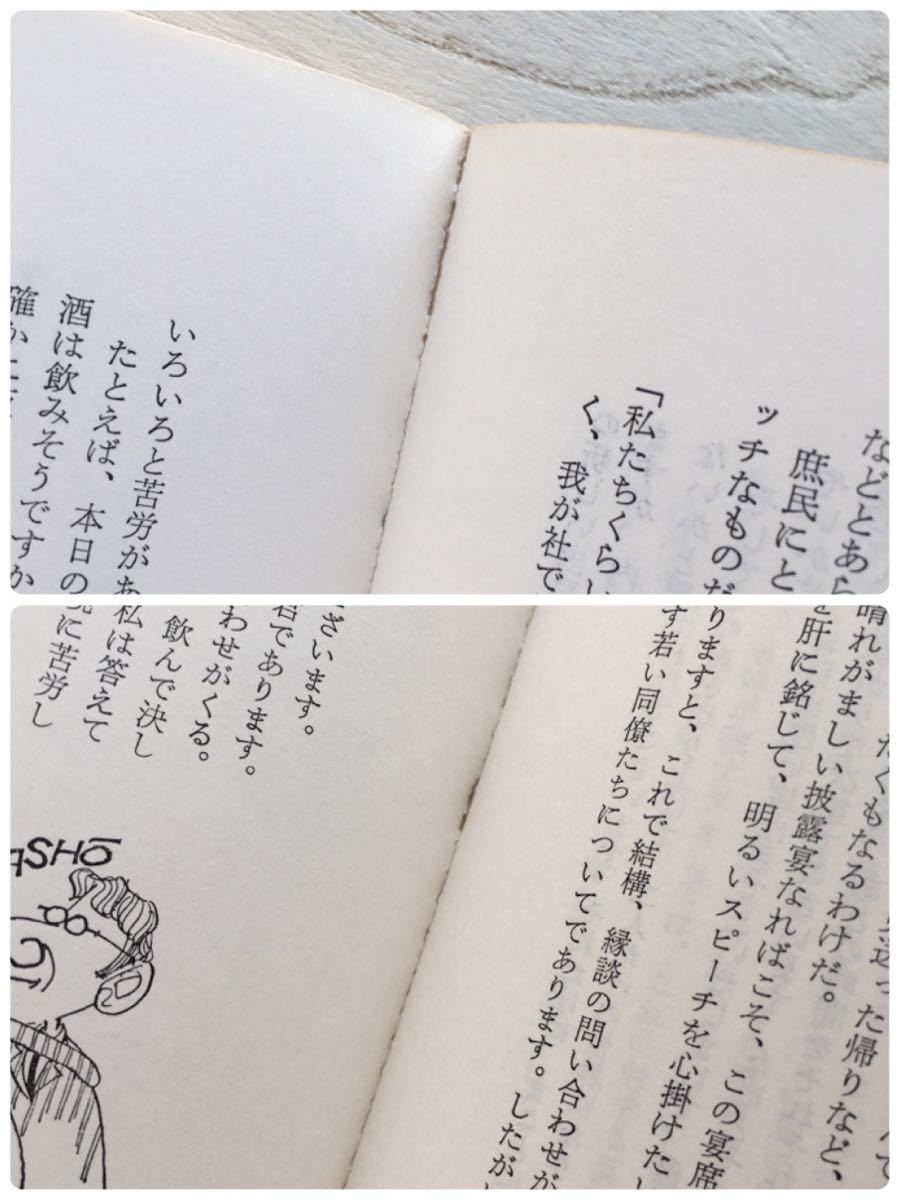 などとあら
庶民にと
ッチなものだ
「私たちくらい
く、我が社で
いろいろと苦労があ
たとえば、本日の
酒は飲みそうですか
確か
た帰りなど、
たくもなるわけだ。
晴れがましい披露宴なればこそ、この宴席
を肝に銘じて、明るいスピーチを心掛けたい
りますと、これで結構、縁談の問い合わせが
す若い同僚たちについてであります。したがい
ざいます。
であります。
わせがくる。
飲んで決し
私は答えて
に苦労し
ASHŌ